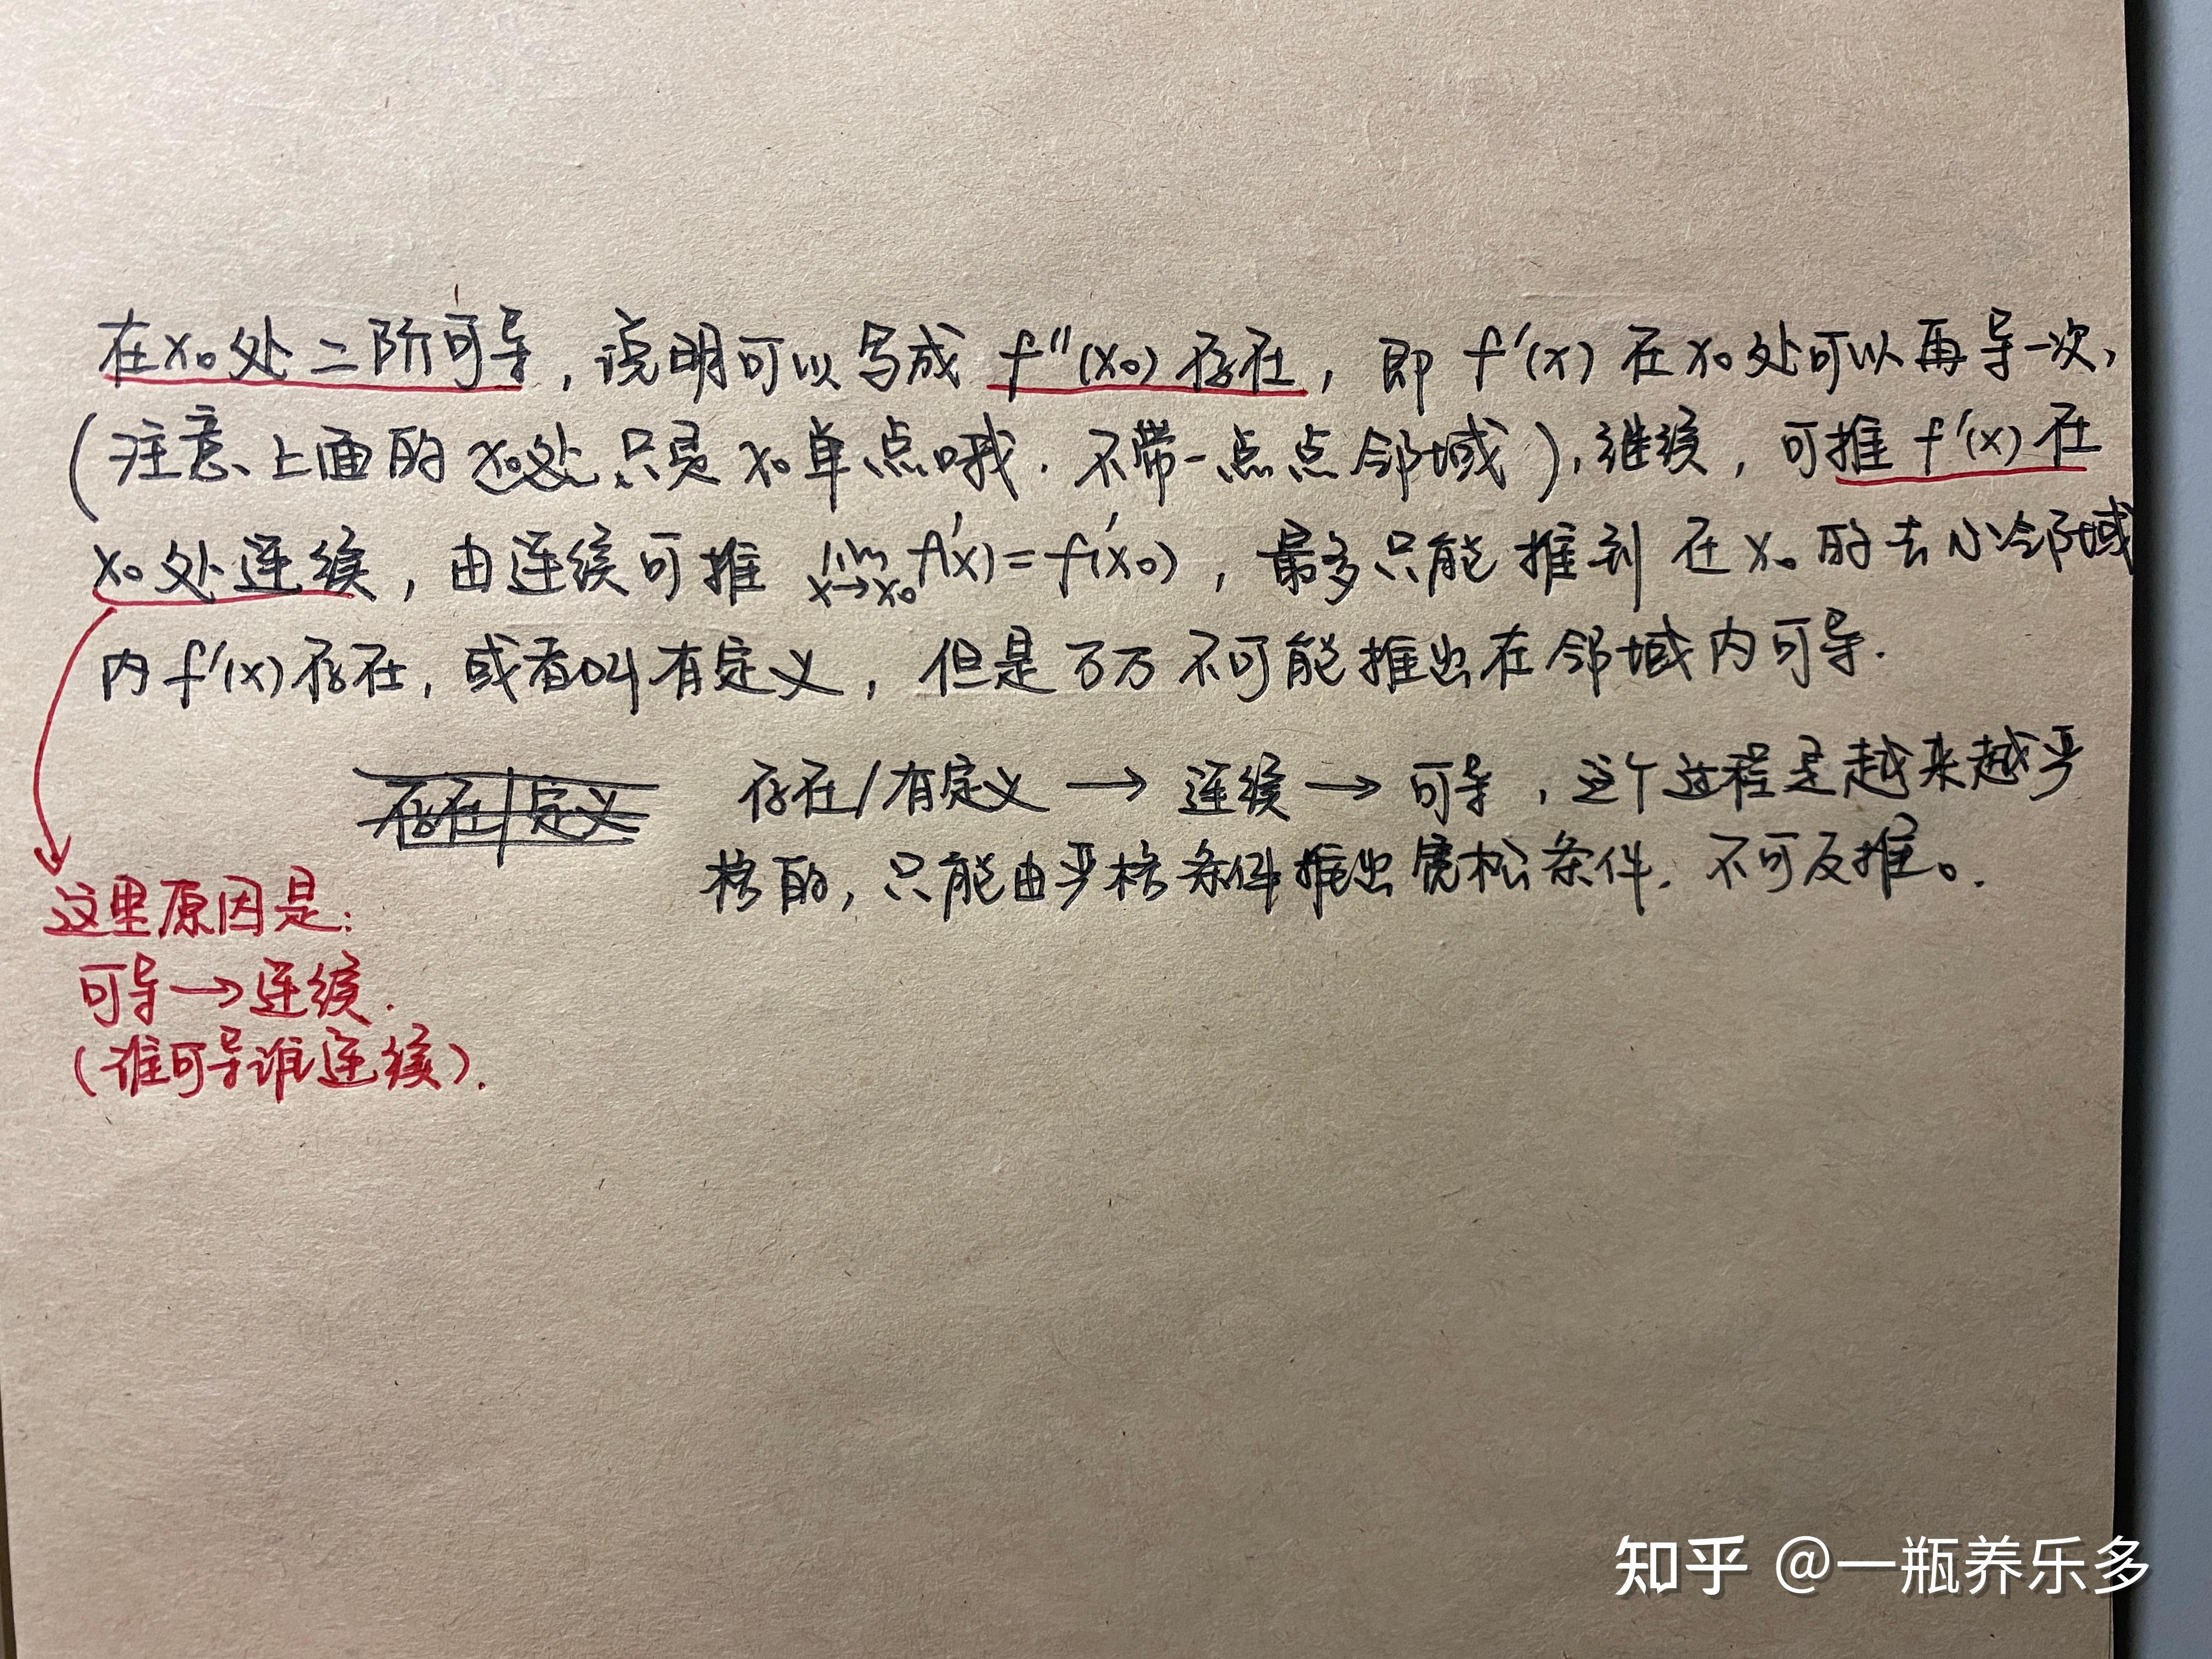 在x₀处二阶可导，说明可以写成 f''(x₀) 存在，即 f'(x) 在x₀处可以再导一次，
(注意、上面的x₀处只是x₀单点哦．不带一点点邻域)，继续，可推 f'(x) 在
x₀处连续，由连续可推 lim x→x₀ f'(x)=f'(x₀)，最多只能推到在x₀的去心邻域
内f'(x)存在，或者叫有定义，但是万万不可能推出在邻域内可导．
存在/定义
存在/有定义→连续→可导，这个过程是越来越严
格的，只能由严格条件推出宽松条件．不可反推。．
这里原因是：
可导→连续．
(谁可导谁连续)．
知乎 @一瓶养乐多